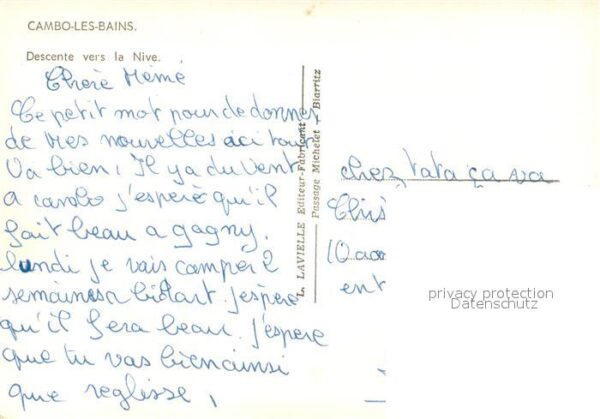 CAMBO-LES-BAINS.
Descente vers la Nive.
Chère Mémé
Ce petit mot pour de donner
de mes nouvelles ici tout
Va bien ; Il ya du vent
a cambo j'espere qu'il
fait beau a gagny.
lundi je vais camper 2
semaines a bidart. j'espere
qu'il fera beau. j'espere
que tu vas bien ainsi
que reglisse,
L. LAVIELLE Editeur-Fabricant
Passage Michelet - Biarritz
chez tata ça va
10 aoo
ent
privacy protection
Datenschutz